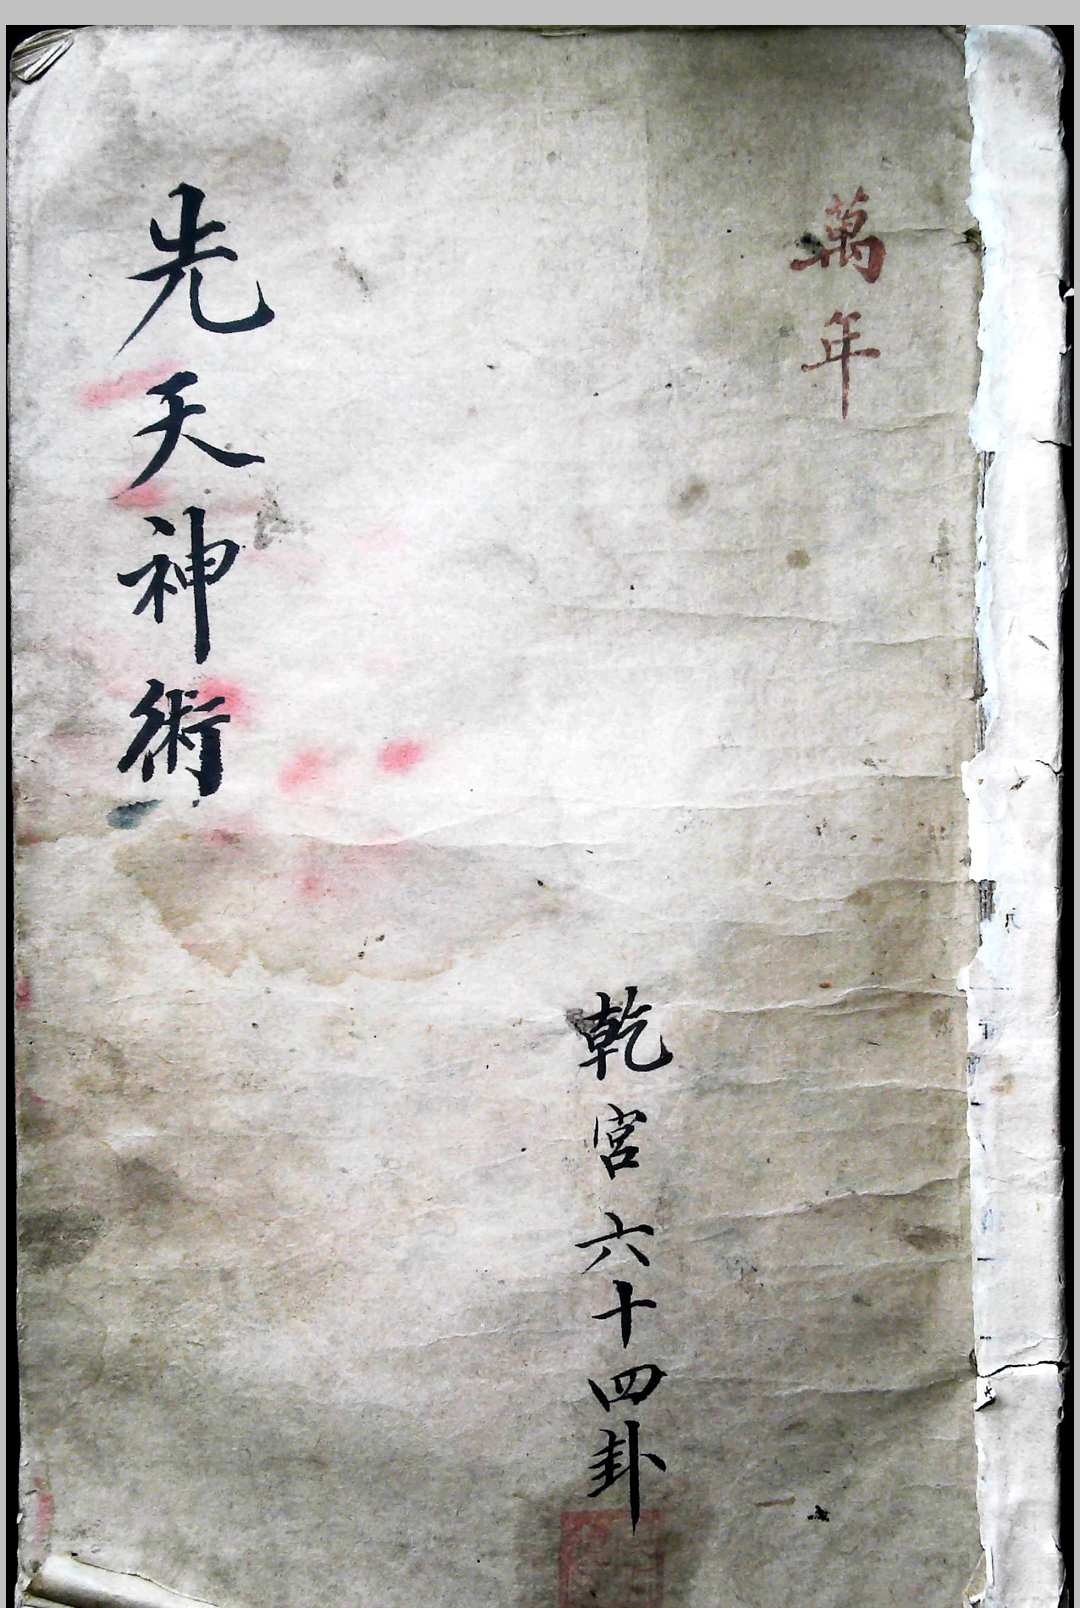 萬年
乾宮六十四卦
先天神術